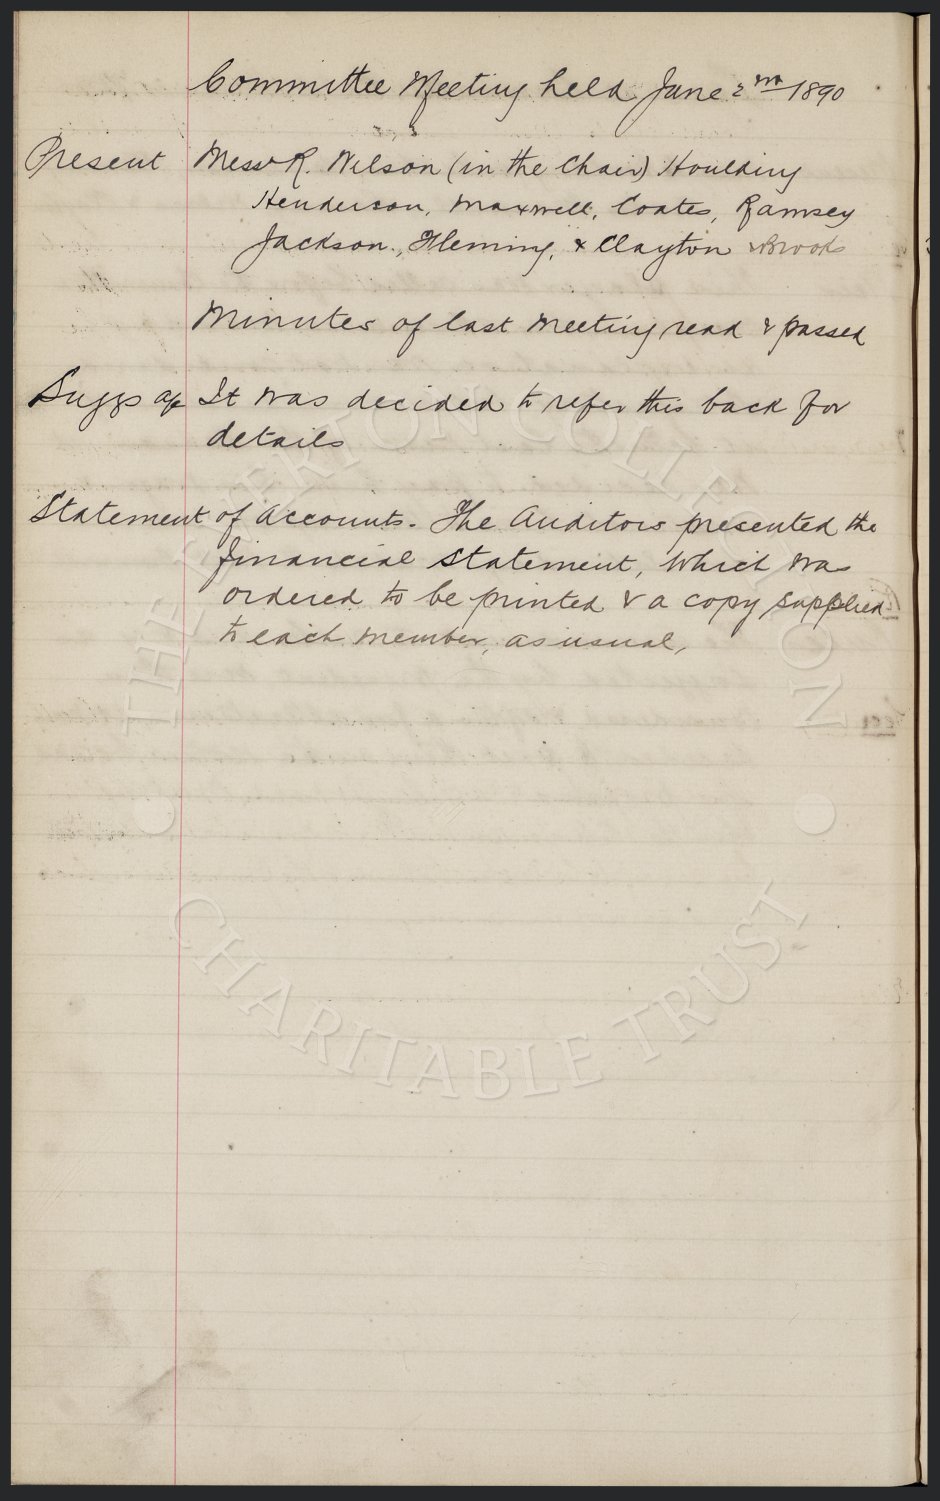 Committee Meeting held June 2nd 1890
Present Messrs R. Wilson (in the Chair) Houlding
Henderson, Maxwell, Coates, Ramsey
Jackson, Fleming, & Clayton & Brooks
Minutes of last Meeting read & passed
Suggs a/c It was decided to refer this back for
details
Statement of Accounts. The Auditors presented the
financial Statement, which was
ordered to be printed & a copy supplied
to each member, as usual,
THE EVERTON COLLECTION
CHARITABLE TRUST